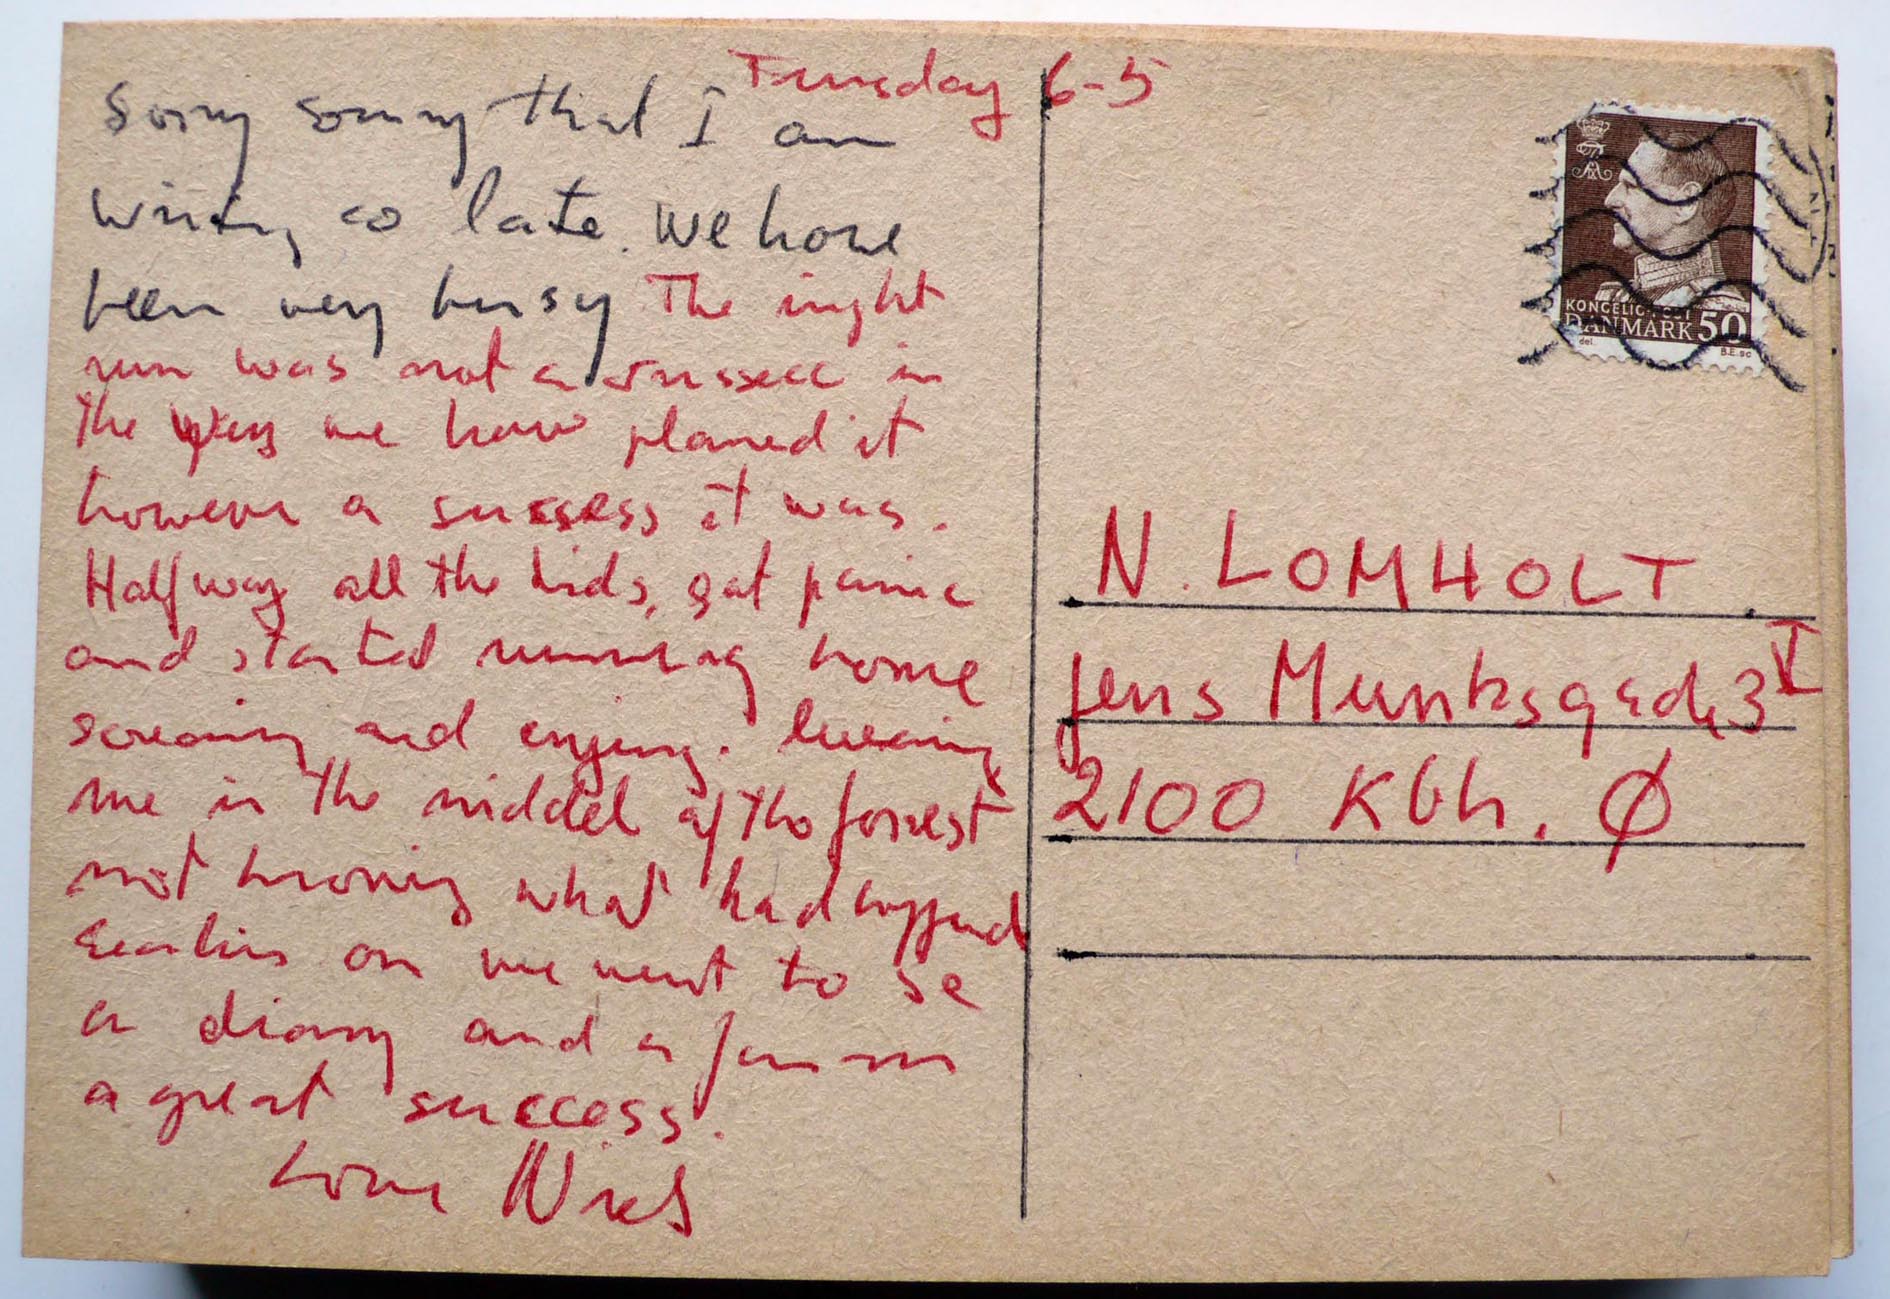 Tuesday 6-5
Sorry sorry that I am
writing so late. We have
been very busy The night
run was not a sussecc in
the way we have planed it
however a success it was.
Halfway all the kids, gat panic
and started running home
screaming and enjing. leveaing
me in the middel of the forrest
not knowing what had happend
Earlier on we went to se
a diary and a farm
a great success.
Love Niels
KONGELIG POST
DANMARK 50
del.
B.E.sc
N. LOMHOLT
Jens Munksgade 3 V
2100 Kbh. Ø